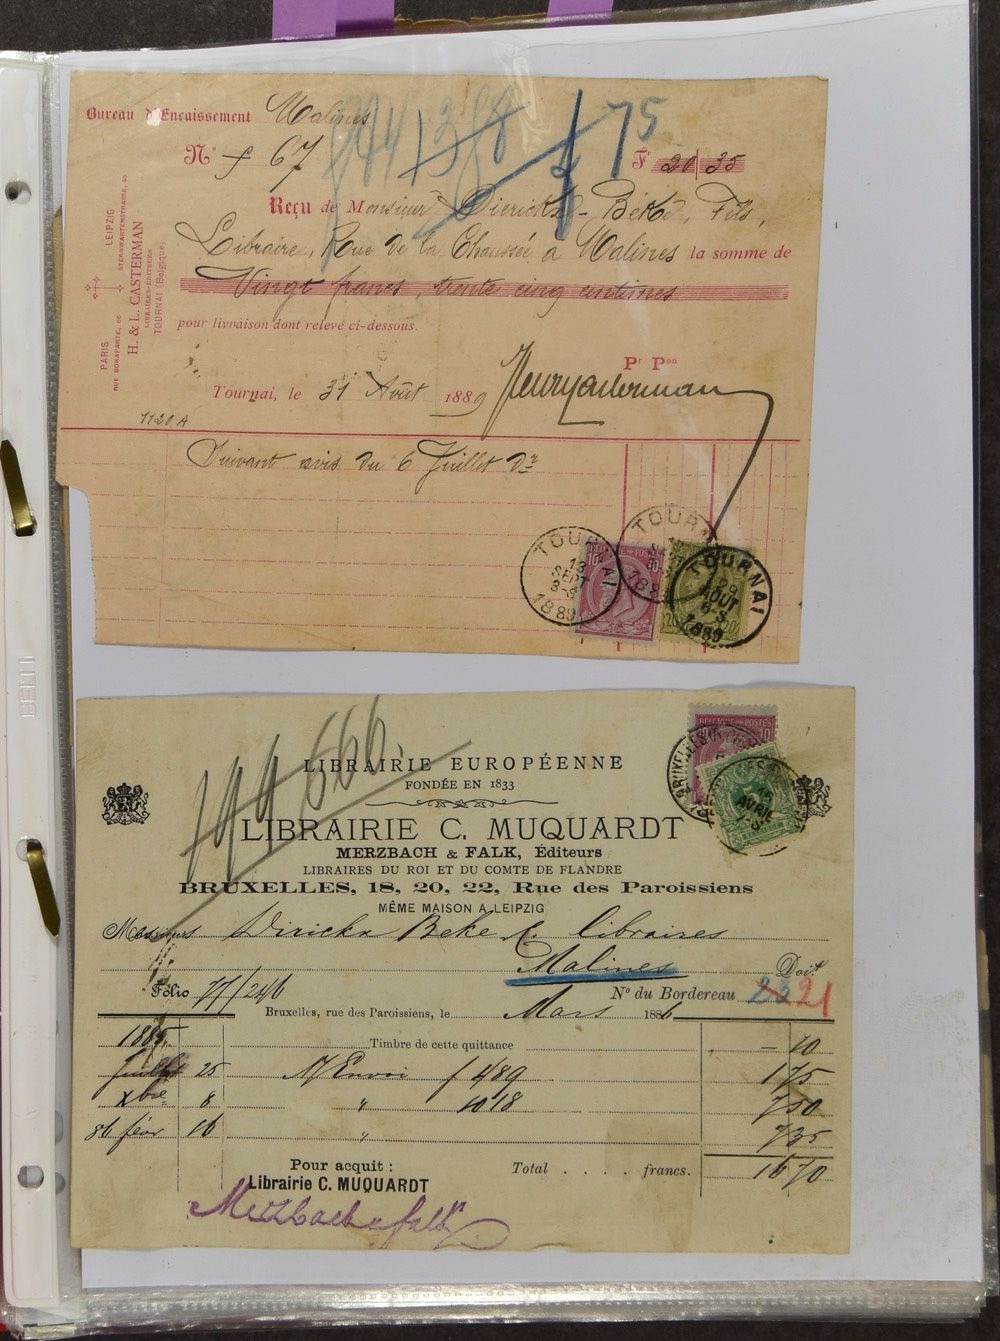 Bureau d'Encaissement Malines
N° f 67
75
F 20 35
Reçu de Monsieur Dierickx-Béké, Fils,
Libraire, Rue de la Chaussée à Malines la somme de
Vingt francs, trente cinq centimes
pour livraison dont relevé ci-dessous.
Pr Pon
Tournai, le 31 Août 1889
PARIS
RUE BONAPARTE, 66
LEIPZIG
H. & L. CASTERMAN
LIBRAIRES-ÉDITEURS
TOURNAI (Belgique)
1120 A
Suivant avis du 6 Juillet Dr
TOURNAI
13
SEPT
1889
TOURNAI
29
AOUT
1889
BELGIQUE POSTES
LIBRAIRIE EUROPÉENNE
FONDÉE EN 1833
LIBRAIRIE C. MUQUARDT
MERZBACH & FALK, Éditeurs
LIBRAIRES DU ROI ET DU COMTE DE FLANDRE
BRUXELLES, 18, 20, 22, Rue des Paroissiens
MÊME MAISON A LEIPZIG
BELGIQUE POSTES
AVRIL
Messieurs Dirickx Beke & C. libraires
Malines Doit
Folio 77/246 N° du Bordereau 21
Bruxelles, rue des Paroissiens, le Mars 1886
1885 Timbre de cette quittance – 10
Juillet 25 N/Envoi f 489 175
Xbre 8 " 1018 750
86 févr 16 " 735
Pour acquit : Total . . . . francs. 1670
Librairie C. MUQUARDT
Merzbach & Falk